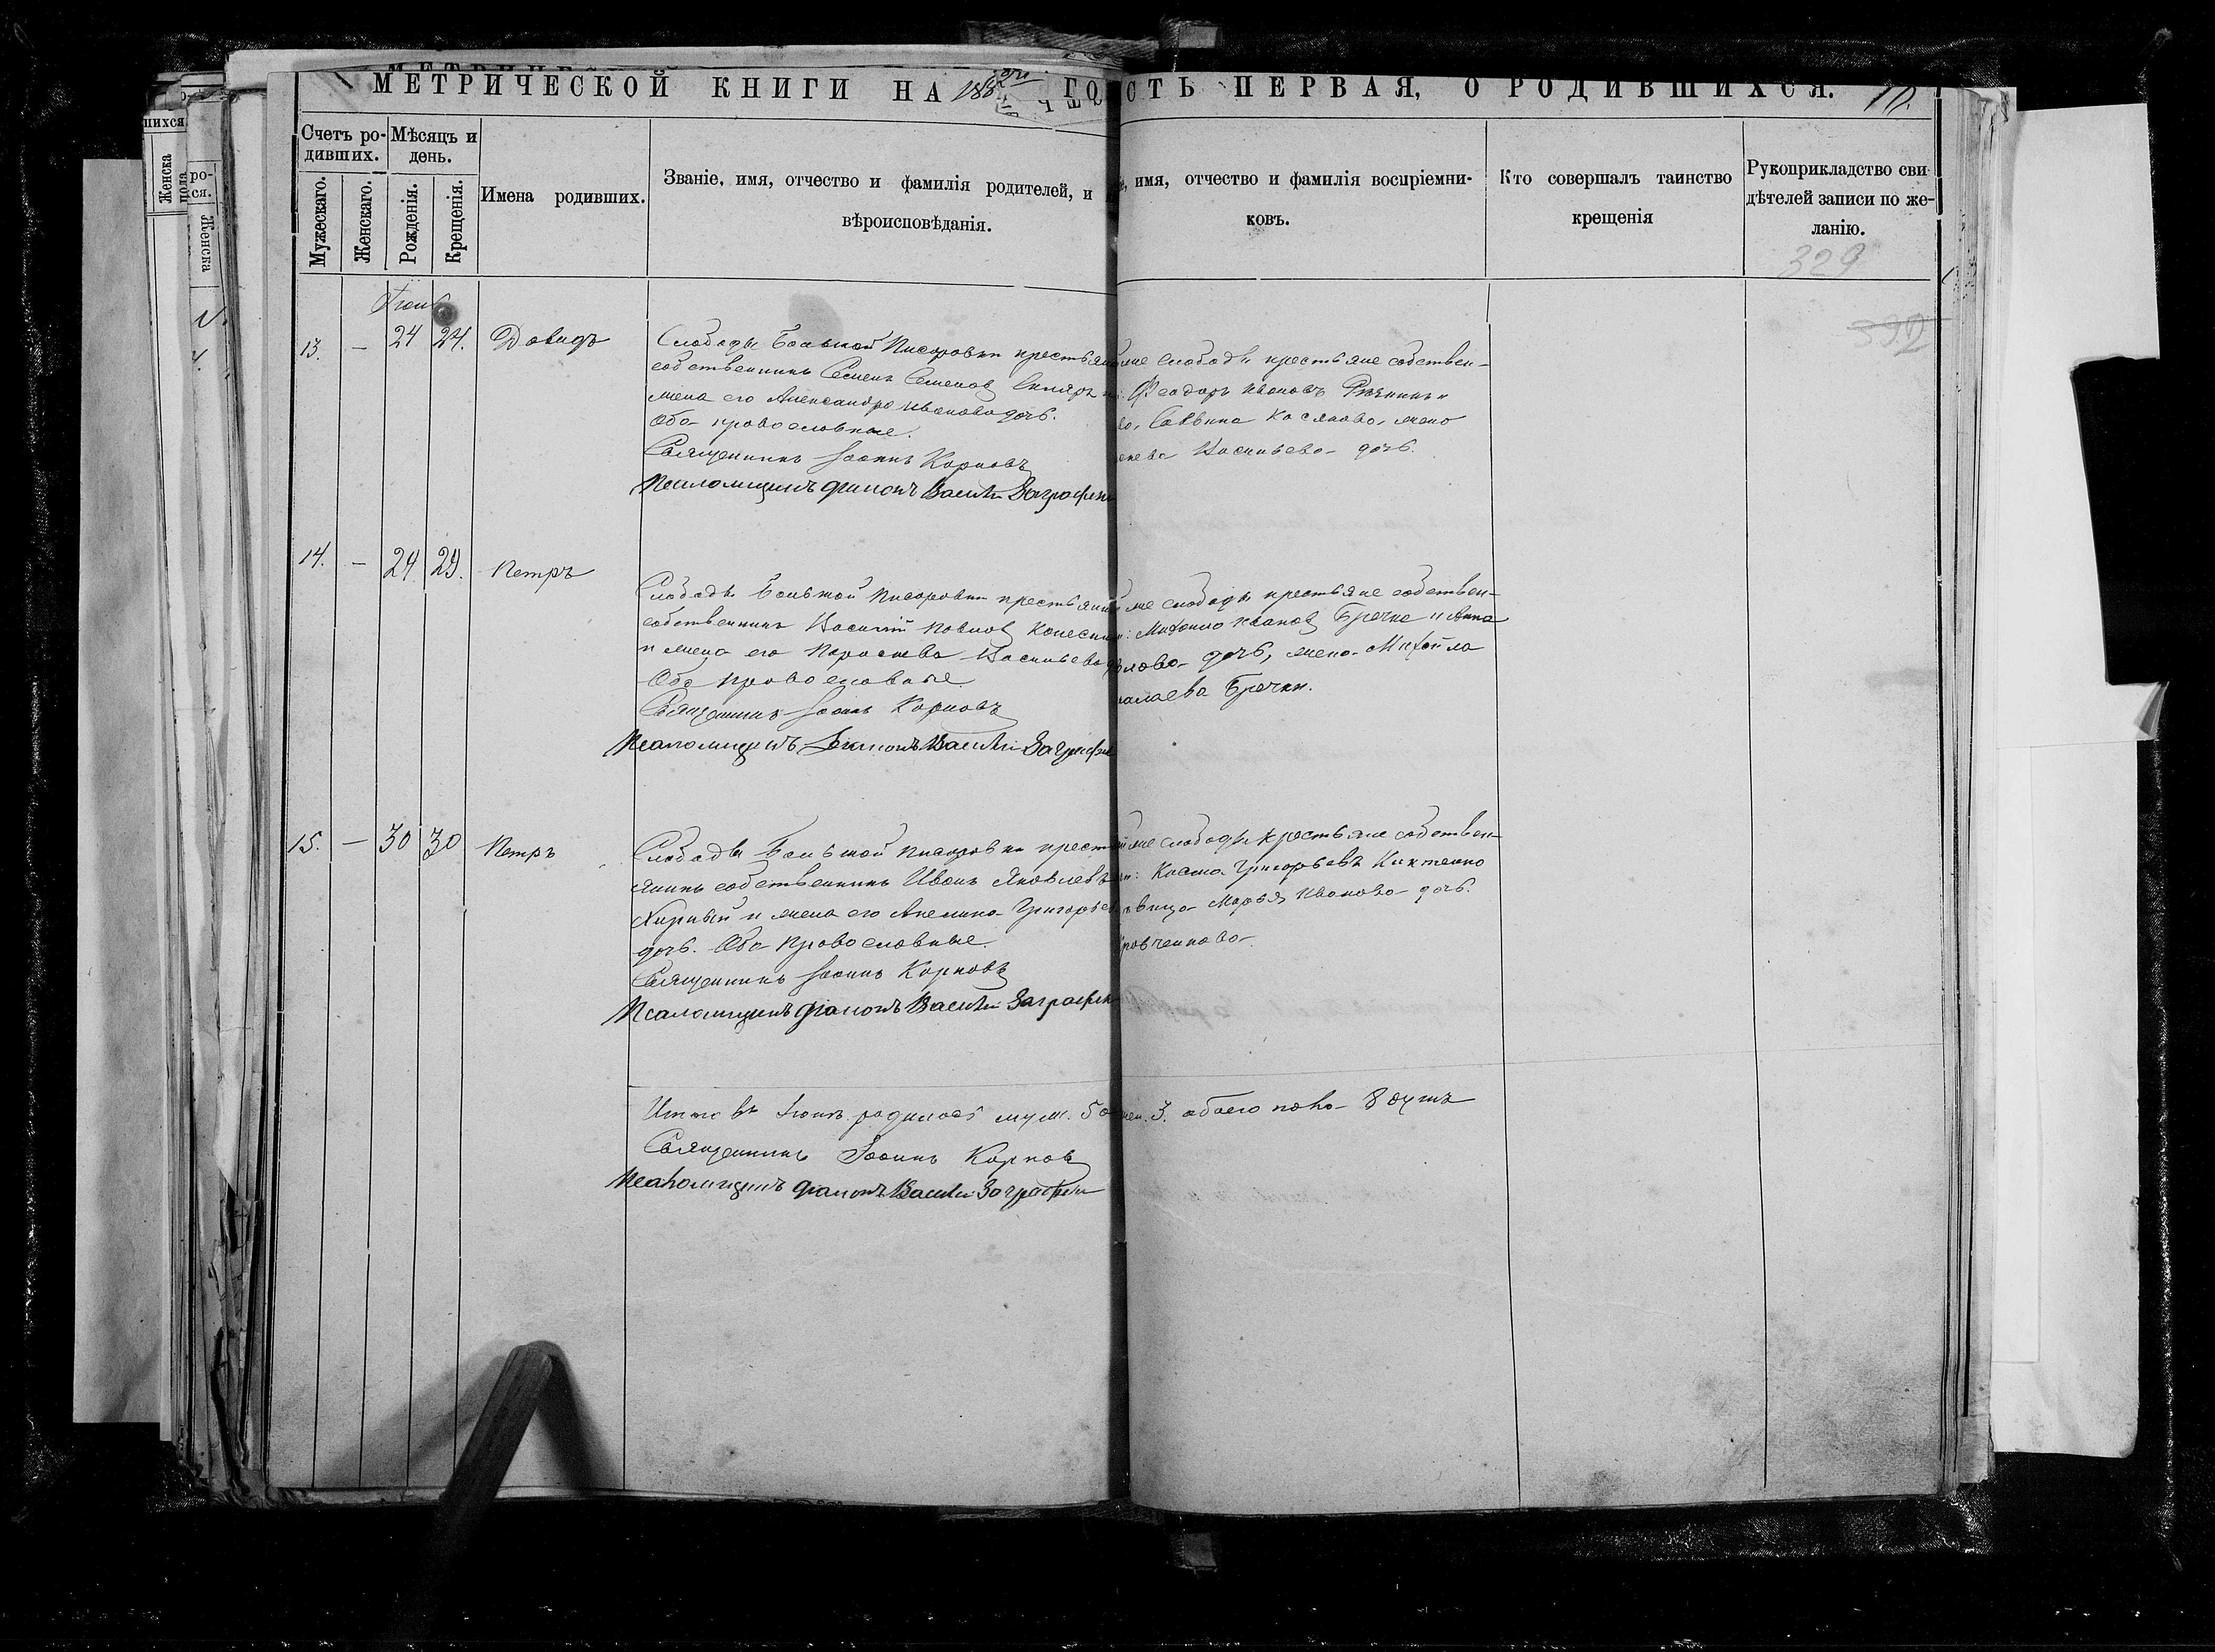 МЕТРИЧЕСКОЙ КНИГИ НА 188 ГО
СТЬ ПЕРВАЯ, О РОДИВШИХСЯ. 10.
Счетъ ро-
дившихъ.
Мѣсяцъ и
день.
Мужескаго.
Женскаго.
Рожденія.
Крещенія.
Имена родивших.
Званіе, имя, отчество и фамилія родителей, и
вѣроисповѣданія.
имя, отчество и фамилія воспріемни-
ковъ.
Кто совершалъ таинство
крещенія
Рукоприкладство сви
дѣтелей записи по же-
ланію.
329
13. — 24 24. Давидъ
Слободы Большой Писаровки крестьян
собственникъ Семенъ Семеновъ
жена его Александра Иванова дочь.
Оба православные.
Священникъ Іоаннъ Карповъ
Псаломщикъ Діаконъ Василій Заграфск
слободы крестьяне собствен-
Феодоръ Ивановъ
Саввина Касянова жена
Васильева дочь.
14. — 24 29. Петръ
Слободы Большой Писаровки крестьянин
собственникъ Василій Павловъ Колесник
и жена его Параскева Васильева
Оба православные.
Священникъ Іоаннъ Карповъ
Псаломщикъ Діаконъ Василій Заграфск
слободы крестьяне собствен-
Михаилъ Ивановъ Бречка и Анна
дочь, жена Михайла
Бречки.
15. — 30 30 Петръ
Слободы Большой Писаровки крест
янинъ собственникъ Иванъ Яковлевъ
Жирный и жена его Акелина Григорьев
дочь. Оба православные.
Священникъ Іоаннъ Карповъ
Псаломщикъ Діаконъ Василій Заграфск
слободы крестьяне собствен-
Косма Григорьевъ Кихтенко
вица Марья Иванова дочь.
ровченкова
Итого въ Іюнѣ родилось муж. 5 жен. 3. обоего пола 8 душъ
Священникъ Іоаннъ Карповъ
Псаломщикъ Діаконъ Василій Заграфск